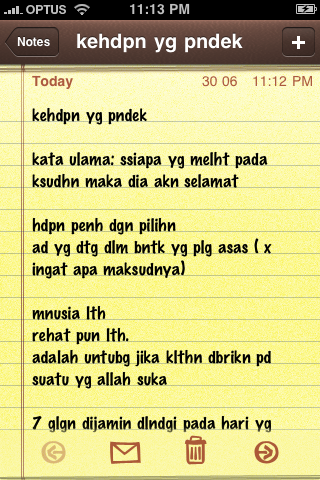 OPTUS 11:13 PM
Notes kehdpn yg pndek +
Today 30 06 11:12 PM
kehdpn yg pndek
kata ulama: ssiapa yg melht pada
ksudhn maka dia akn selamat
hdpn penh dgn pilihn
ad yg dtg dlm bntk yg plg asas ( x
ingat apa maksudnya)
mnusia lth
rehat pun lth.
adalah untubg jika klthn dbrikn pd
suatu yg allah suka
7 glgn dijamin dlndgi pada hari yg